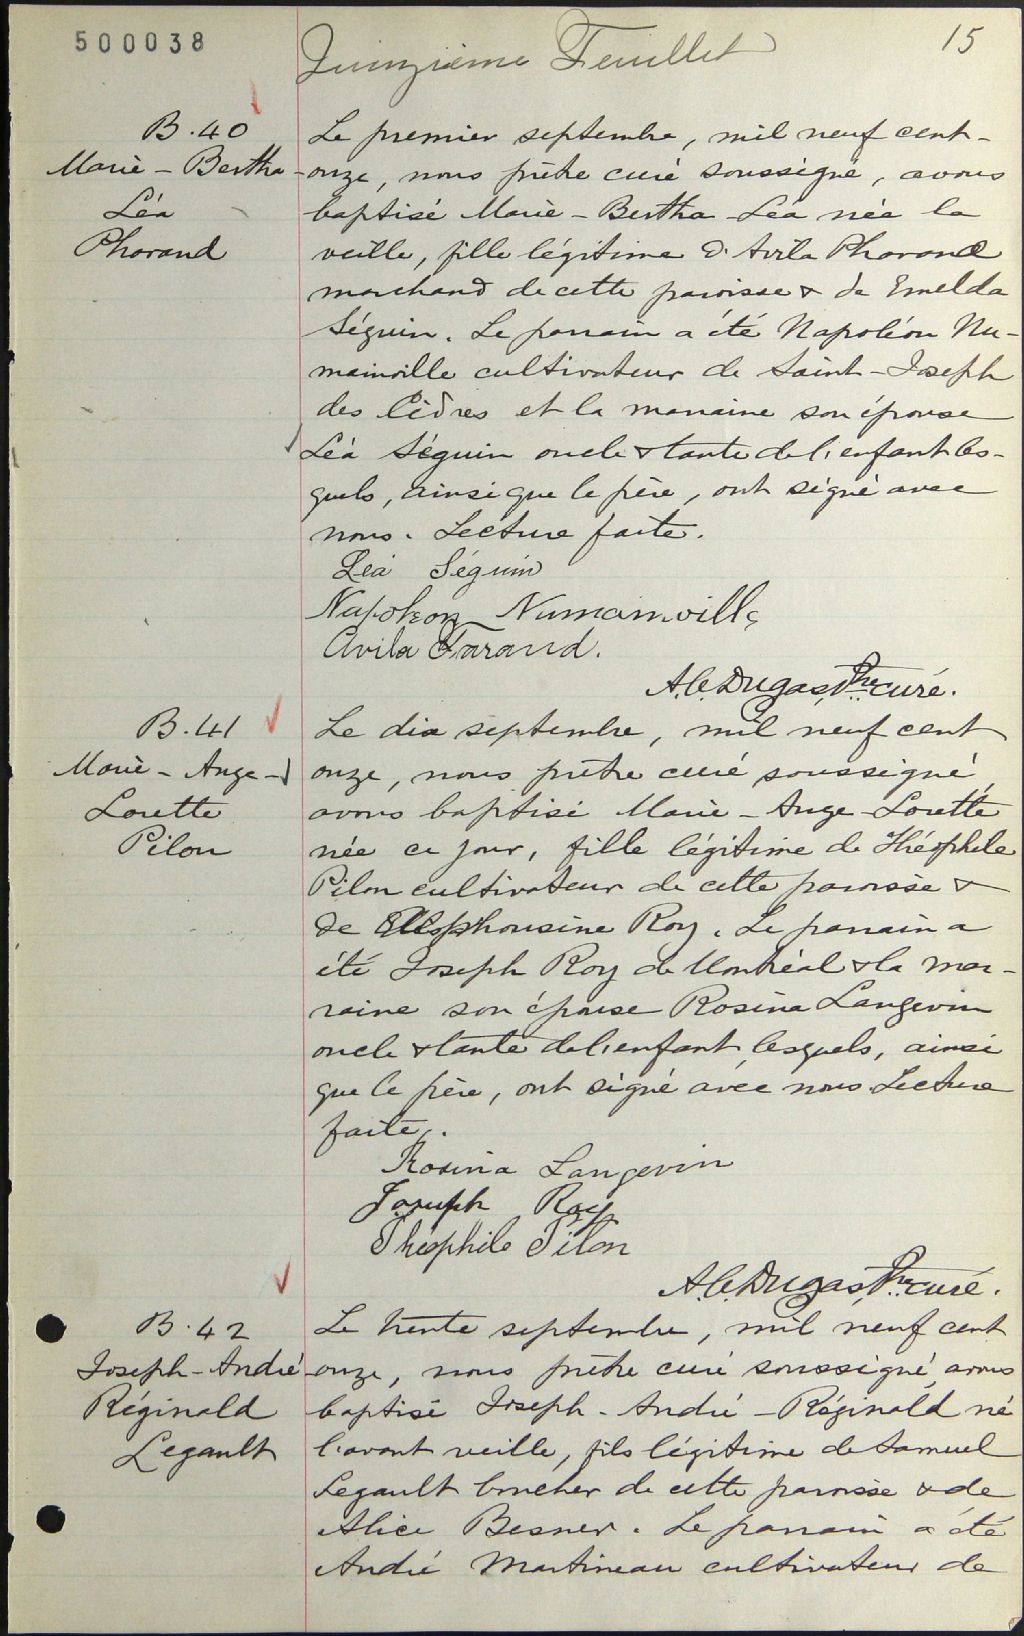 500038
Quinzième Feuillet
15
B.40
Marie-Bertha
Léa
Pharand
Le premier septembre, mil neuf cent-
onze, nous prêtre curé soussigné, avons
baptisé Marie-Bertha-Léa née la
veille, fille légitime d'Avila Pharand
marchand de cette paroisse & de Emelda
Séguin. Le parrain a été Napoléon Nu-
mainville cultivateur de Saint-Joseph
des Cèdres et la marraine son épouse
Léa Séguin oncle & tante de l'enfant les-
quels, ainsi que le père, ont signé avec
nous. Lecture faite.
Léa Séguin
Napoleon Numainville
Avila Farand.
A.C. Dugas, Ptre curé.
B.41
Marie-Ange-
Lorette
Pilon
Le dix septembre, mil neuf cent
onze, nous prêtre curé soussigné,
avons baptisé Marie-Ange-Lorette
née ce jour, fille légitime de Théophile
Pilon cultivateur de cette paroisse &
de Roy. Le parrain a
été Joseph Roy de Montréal & la mar-
raine son épouse Rosina Langevin
oncle & tante de l'enfant, lesquels, ainsi
que le père, ont signé avec nous. Lecture
faite.
Rosina Langevin
Joseph Roy
Théophile Pilon
A.C. Dugas, Ptre curé.
B.42
Joseph-André
Réginald
Legault
Le trente septembre, mil neuf cent
onze, nous prêtre curé soussigné, avons
baptisé Joseph-André-Réginald né
l'avant veille, fils légitime de Samuel
Legault boucher de cette paroisse & de
Alice Besner. Le parrain a été
André Martineau cultivateur de